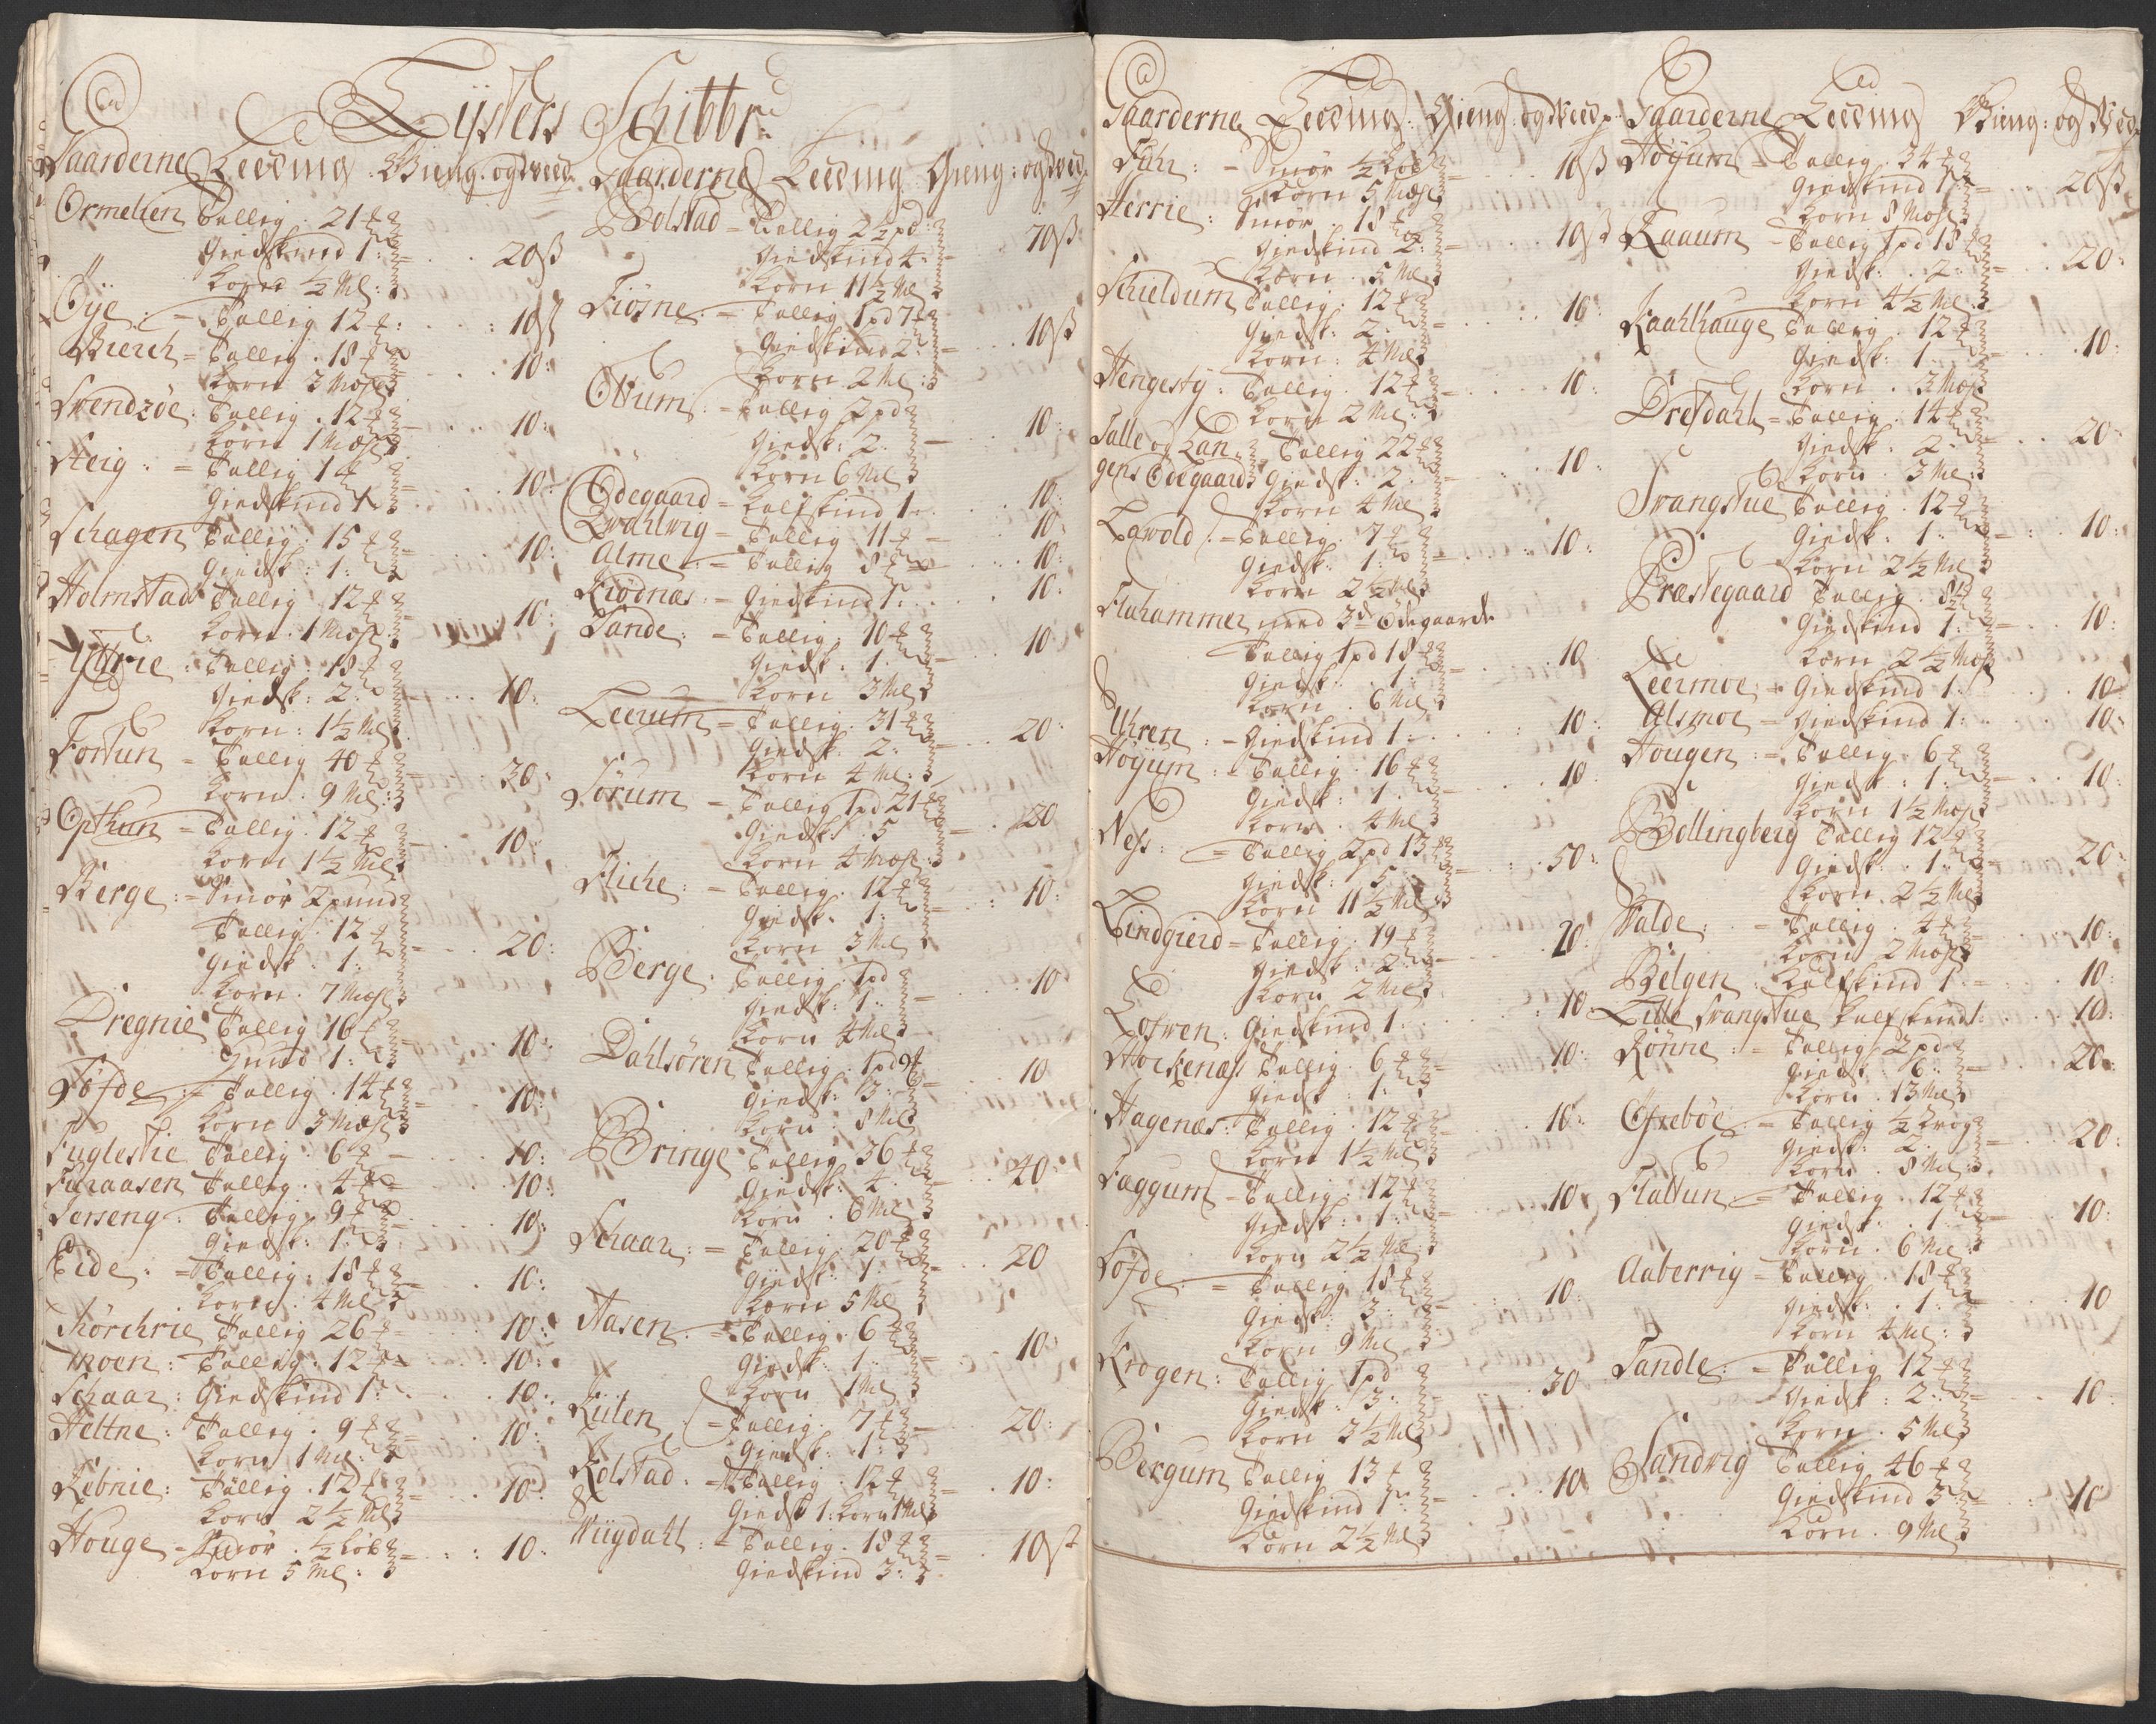 Lÿsters Schibbr:
Gaarderne Leeding Gieng: og dReed
Ormelien Tallig. 21 ℔
Giedskind 1:
Korn ½ Ml: 20 ß
Öye: = Tallig 12 ℔: 10 ß
Bierch = Tallig. 18 ℔
Korn 3 Mæhl 10:
Svendzöe: Tallig. 12 ℔
Korn 1 Mæhl 10:
Steig: = Tallig 12
Giedskind 1 10:
Schagen Tallig. 15 ℔
Giedsk: 1: 10:
Holmstad Tallig. 12 ℔
Korn. 1 Mæhl 10:
Yttrie: Tallig: 18 ℔
Giedsk: 2: 10:
Korn: 1½ Ml
Fortun = Tallig 40 ℔
Korn. 9 Ml: 30:
Opthun = Tallig. 12 ℔
Korn 1½ Ml 10:
Berge: = Smör 2 pund
Tallig: 12 ℔
Giedsk. 1: 20:
Korn. 7 Mæhl
Dregnie Tallig 16 ℔
Huud 1: 10:
Söfde: = Tallig. 14 ℔
Korn 3 Mæhl 10:
Fuglestie Tallig. 6 ℔ 10:
Furaasen Tallig. 4 ℔ 10:
Serseng: Tallig. 9 ℔
Giedsk: 1: 10:
Eide: = Tallig. 18 ℔
Korn. 4 Ml 10:
Schörchrie Tallig 26 ℔ 10:
Moen: Tallig: 12 ℔ 10:
Schaar: Giedskind 1: 10:
Heltne: Tallig. 9 ℔
Korn 1 Ml: 10:
Kibnie: Tallig. 12 ℔
Korn 2½ Ml 10:
Houge = Smör. ½ Löb
Korn 5 Ml: 10:
Gaarderne Leeding Gieng: og dReed
Bolstad = Tallig 2½ pd:
Giedskind 4: 70 ß:
Korn 11½ Ml
Fiösne: = Tallig 1 pd 7 ℔
Giedskind 2: 10 ß
Korn. 2 Ml:
Ottum: = Tallig 2 pd
Giedsk: 2. 10:
Korn 6 Ml
Ödegaard = Kalfskind 1: 10:
Qvahlwig = Tallig: 11 ℔ 10:
Alme: = Tallig 8 ℔ 10:
Kiödnas: = Giedskind 1: 10:
Sande: = Tallig: 10 ℔
Giedsk: 1: 10
Korn 3 Ml
Leerum = Tallig: 31 ℔
Giedsk: 2: 20:
Korn 4 Ml:
Sörum = Tallig 1 pd 21 ℔
Giedsk: 5 20
Korn 4 Mæhl:
Fliche: = Tallig. 12 ℔
Giedsk. 1: 10:
Korn 3 Ml
Berge. Tallig. 1 pd
Giedsk: 1: 10
Korn 4 Ml
Dahlsören Tallig. 1 pd 9 ℔
Giedsk: 3: 10
Korn: 8 Ml
Bringe Tallig. 36 ℔
Giedsk: 4: 40:
Korn. 6 Ml
Schaar: = Tallig: 20 ℔
Giedsk: 1: 20
Korn 5 Ml
Aasen: = Tallig. 6 ℔
Giedsk: 1: 10:
Korn 1 Ml
Kulen = Tallig. 7 ℔
Giedsk: 1: 20:
Kolstad: = Tallig. 12 ℔
Giedsk 1: Korn 1 Ml 10:
Wiigdahl: = Tallig. 18 ℔
Giedskind 3: 10 ß
Gaarderne Leeding. Gieng: og dReed
Fuhr: = Smör ½ Löb
Korn 5 Mæhl 10 ß
Herrie: Smör. 18 ℔
Giedskind 2: 10 ß
Korn. 5 Ml
Schieldum Tallig: 12 ℔
Giedsk: 2: 10:
Korn: 4 Ml
Hengestÿ: Tallig. 12 ℔
Korn 2 Ml: 10:
Salle og Lan-
gens Ödegaard Tallig 22 ℔
Giedsk: 2: 10:
Korn 4 Ml
Lawold: = Tallig. 7 ℔
Giedsk: 1: 10:
Korn 2½ Ml
Flahammer med 3de Ödegaarde
Tallig 1 pd 18 ℔
Giedsk: 1: 10
Korn. 6 Ml
Uhren: = Giedskind 1: 10:
Höyum: = Tallig. 16 ℔
Giedsk: 1: 10:
Korn. 4 Ml
Ness: = Tallig 2 pd 13 ℔
Giedsk: 5: 50:
Korn 11½ Ml
Lindgierd = Tallig. 19 ℔
Giedsk: 2: 20:
Korn 2 Ml
Lofren: Giedskind 1: 10:
Hockenæs Tallig. 6 ℔
Giedsk: 1: 10:
Hagenæs: Tallig. 12 ℔
Korn 1½ Ml 10:
Faggum = Tallig. 12 ℔
Giedsk: 1: 10:
Korn 2½ Ml
Söfde: = Tallig 18 ℔
Giedsk: 3: 10:
Korn 9 Ml
Krogen: Tallig 1 pd
Giedsk: 3: 30
Korn 3½ Ml
Bergum Tallig. 13 ℔
Giedskind 1: 10
Korn 2½ Ml
Gaarderne Leeding Gieng: og dReed
Höyum = Tallig. 34 ℔
Giedskind 1: 20 ß
Korn 8 Mæhl
Raaum = Tallig 1 pd 18 ℔
Giedsk: 2: 20:
Korn 4½ Ml
Kaahlhauge Tallig. 12 ℔
Giedsk: 1: 10:
Korn. 3 Mæhl
Drefdahl = Tallig. 14 ℔
Giedsk: 2 20:
Korn. 3 Ml
Trangstue Tallig. 12 ℔
Giedsk: 1: 10:
Korn 2½ Ml
Præstegaard Tallig. 8½
Giedskind 1: 10:
Korn 2½ Mæhl
Leermoe: Giedskind 1: 10
Alsmoe = Giedskind 1: 10:
Hougen: = Tallig. 6 ℔
Giedsk: 1: 10:
Korn 1½ Mæhl
Bollingberg Tallig 12 ℔
Giedsk: 1: 20:
Korn. 2½ Ml
Walde: = Tallig. 4 ℔
Korn 2 Mæhl 10:
Bolgen: Kalfskind 1 10:
Lille Trangstue Kalfskind 1: 10:
Rönne: = Tallig 2 pd
Giedsk: 6: 20:
Korn. 13 Ml
Ofreböe = Tallig ½ Wog
Giedsk: 2 20:
Korn. 8 Ml:
Flattun: = Tallig. 12 ℔
Giedsk: 1: 10:
Korn. 6 Ml
Aaberrig = Tallig. 18 ℔
Giedsk: 1: 10
Korn 4 Ml:
Sandle: = Tallig 12 ℔
Giedsk: 2: 10:
Korn. 5 Ml
Sandvig Tallig 46 ℔
Giedskind 3: 10
Korn. 9 Ml